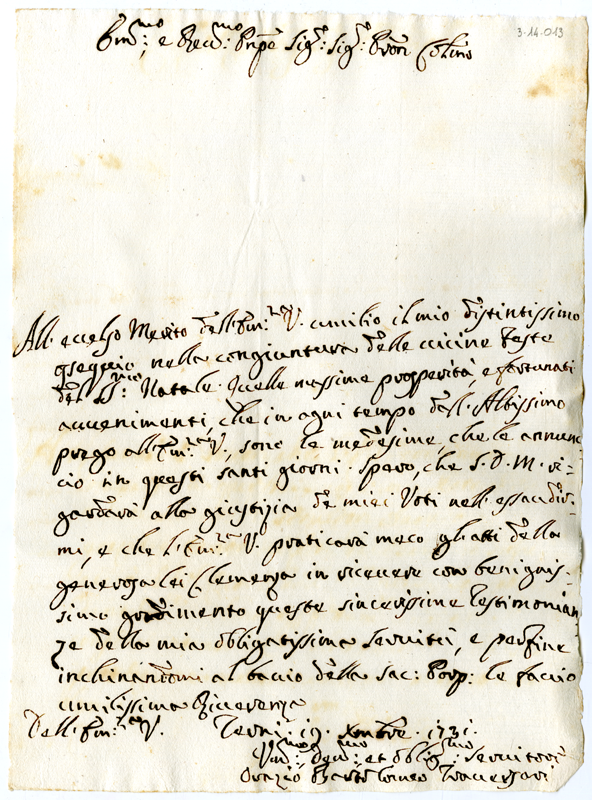 3·14·013
Em:mo, e Rev:mo Pnpe Sig:r Sig:r Pron Colmo
All' eccelso Merito dell' Em:za V. umilio il mio distintissimo
ossequio nella congiuntura delle vicine feste
del SS:mo Natale. Quelle massime prosperità, e fortunati
avvenimenti, che in ogni tempo dall' Altissimo
prego all' Em:za V., sono le medesime, che le annun-
cio in questi santi giorni. Spero, che S. D. M. ri-
gardarà alla giustizia de miei Voti nell' essaudir-
mi, e che l' Em:za V. praticarà meco gli atti della
generosa lei Clemenza in ricevere con benignis-
simo gradimento queste sincerissime testimonian-
ze della mia obligatissima servitù, e per fine
inchinandomi al bacio della Sac: Porp: le faccio
umilissima Riverenza
Dell' Em:za V. Terni 19. Xmbre. 1731.
Um:mo Dev:mo, et oblig:mo Servitore
Orazio Bartolomeo